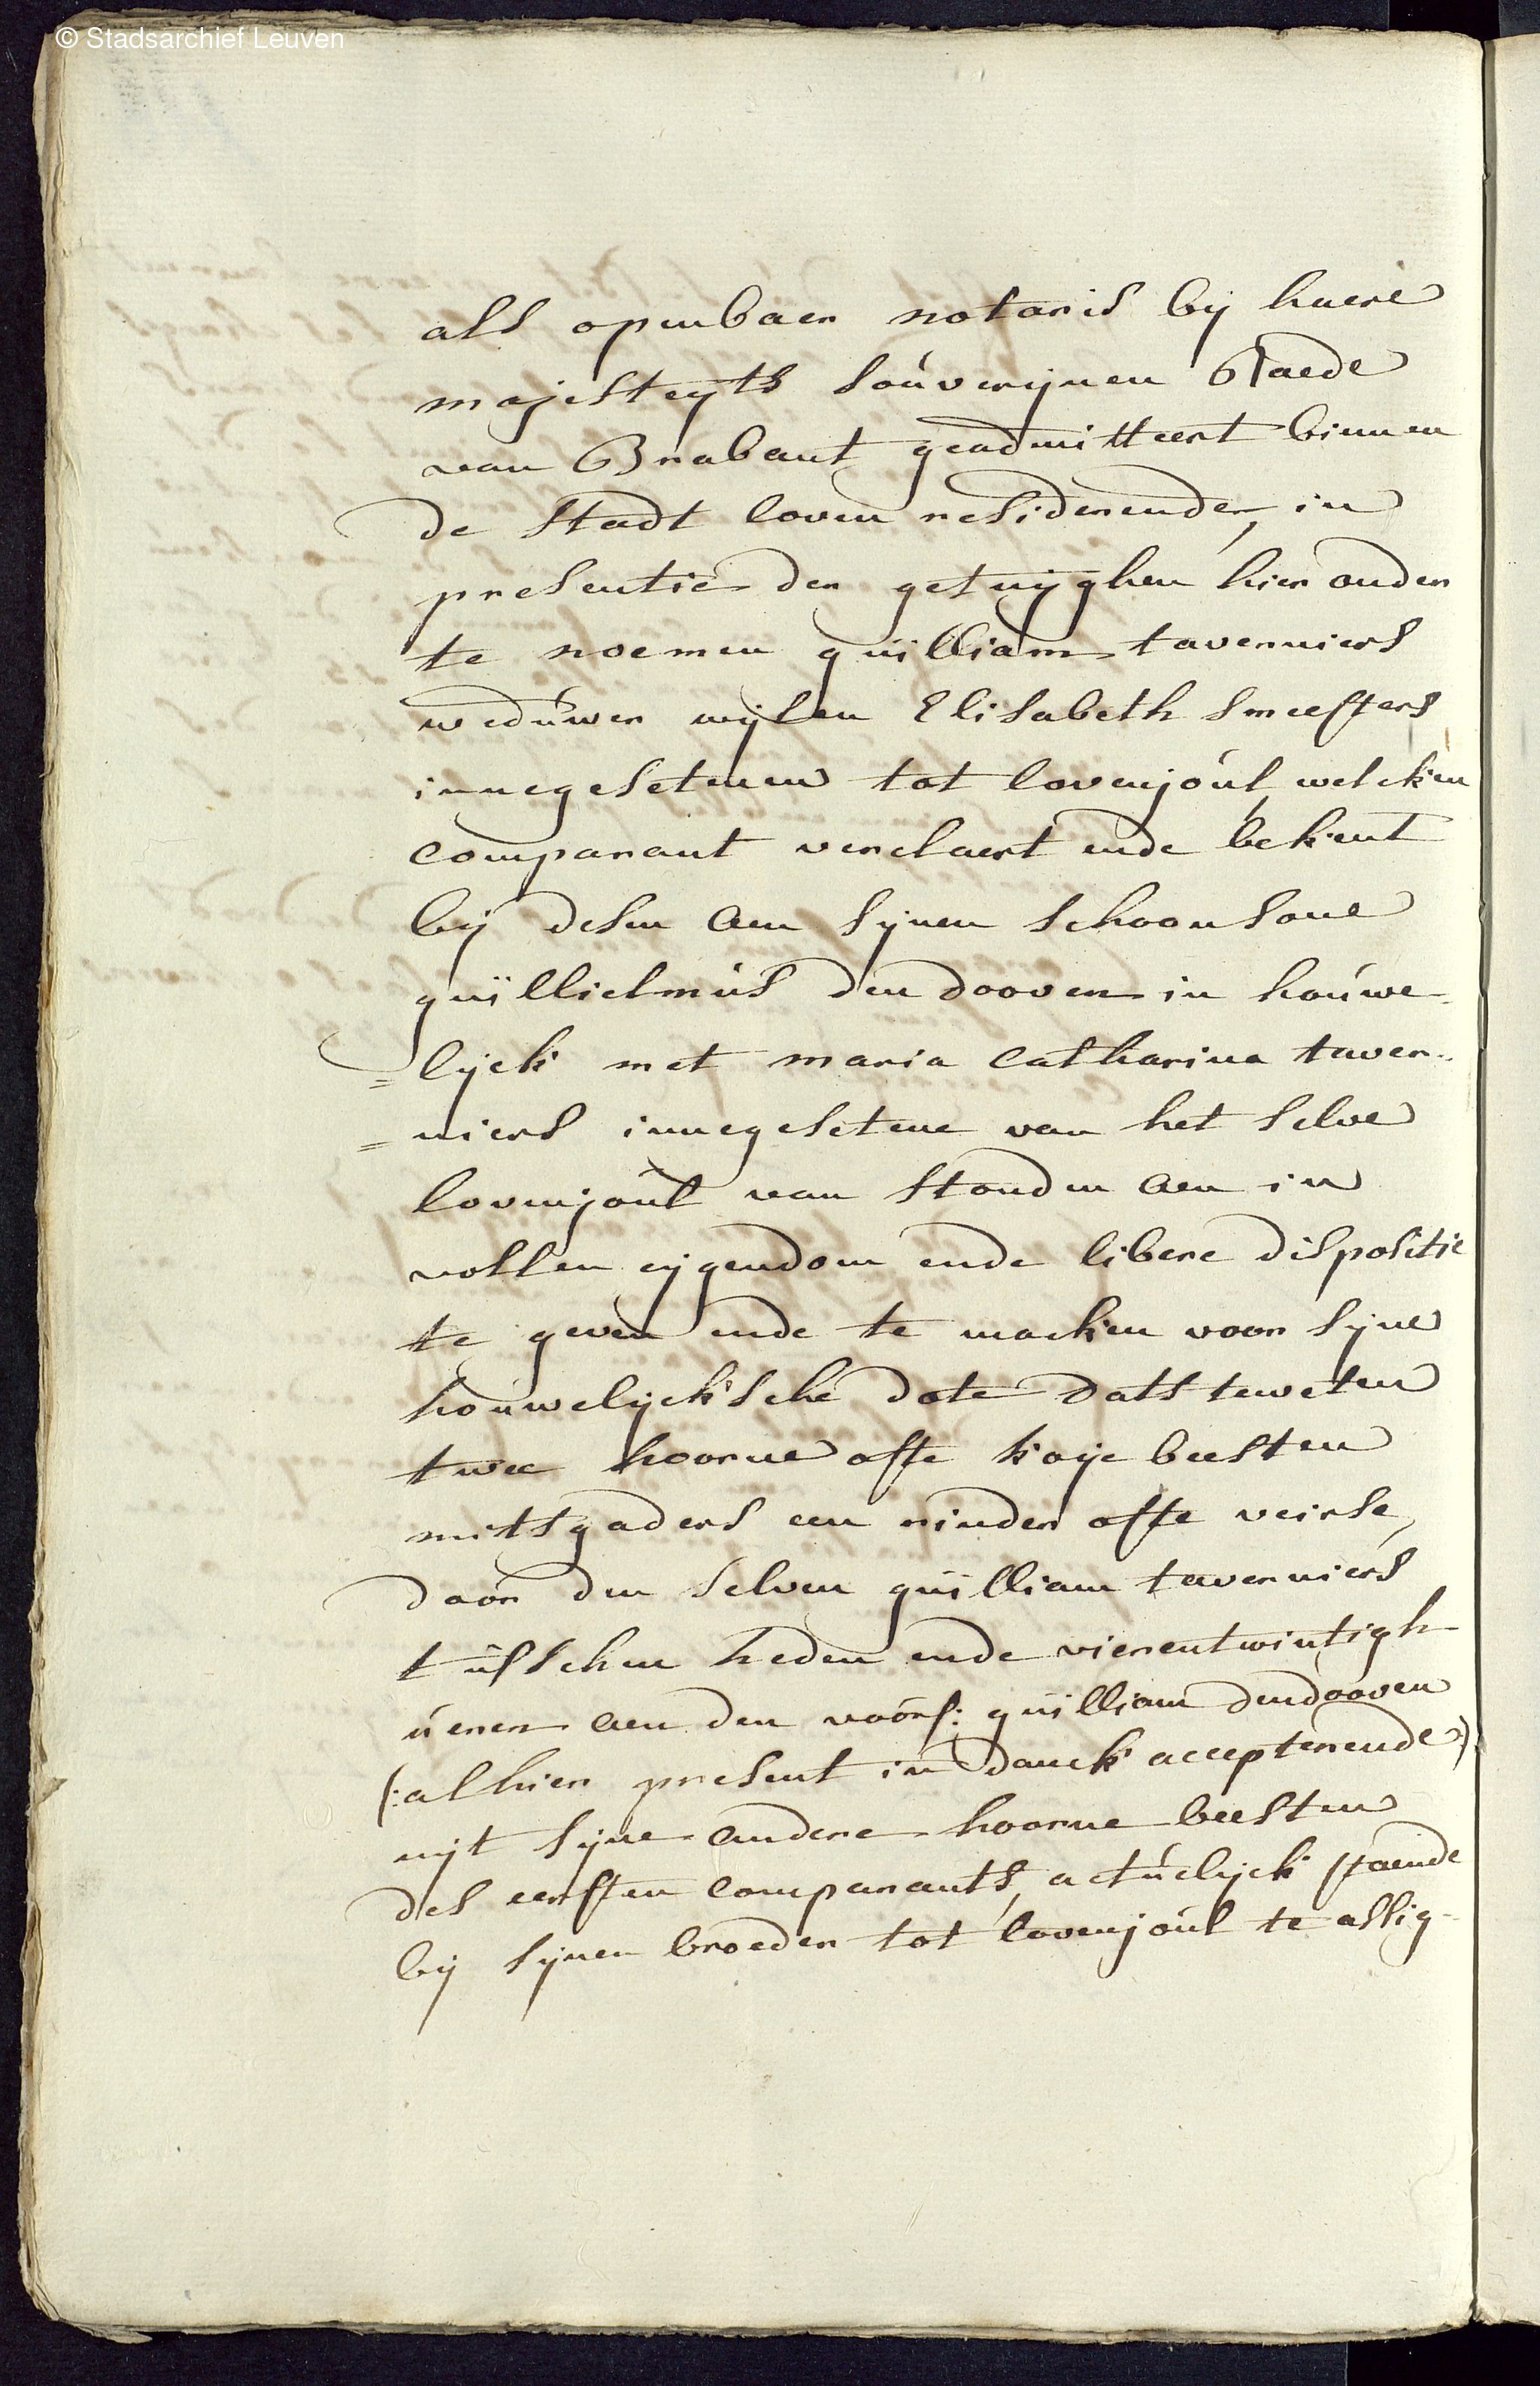 © Stadsarchief Leuven
als openbaer notaris bij haere
majesteyts souverijnen Raede
van Brabant geadmitteert binnen
de stadt loven residerende, in
presentie der getuijghen hier onder
te noemen guilliam taverniers
weduwer wijlen Elisabeth smeesters
innegesetenen tot lovenjoul, welcken
comparant verclaert ende bekent
bij desen aen sijnen schoonsone
guillielmus den dooven in houwe-
=lijck met maria catharina taver-
=niers innegesetene van het selve
lovenjoul van stonden aen in
vollen eijgendom ende libere dispositie
te geven ende te maeken voor sijne
houwelijcksche dote dats teweten
twee hoorne ofte koije beesten
mitsgaders een rinder ofte veirse,
door den selven guilliam taverniers
tusschen heden ende vierentwintigh
ueren aen den voors: guilliam dendooven
(:alhier present in danck accepterende)
uijt sijne andere hoorne beesten
des eersten comparants, actuelijck staende
bij sijnen broeder tot lovenjoul te assig-